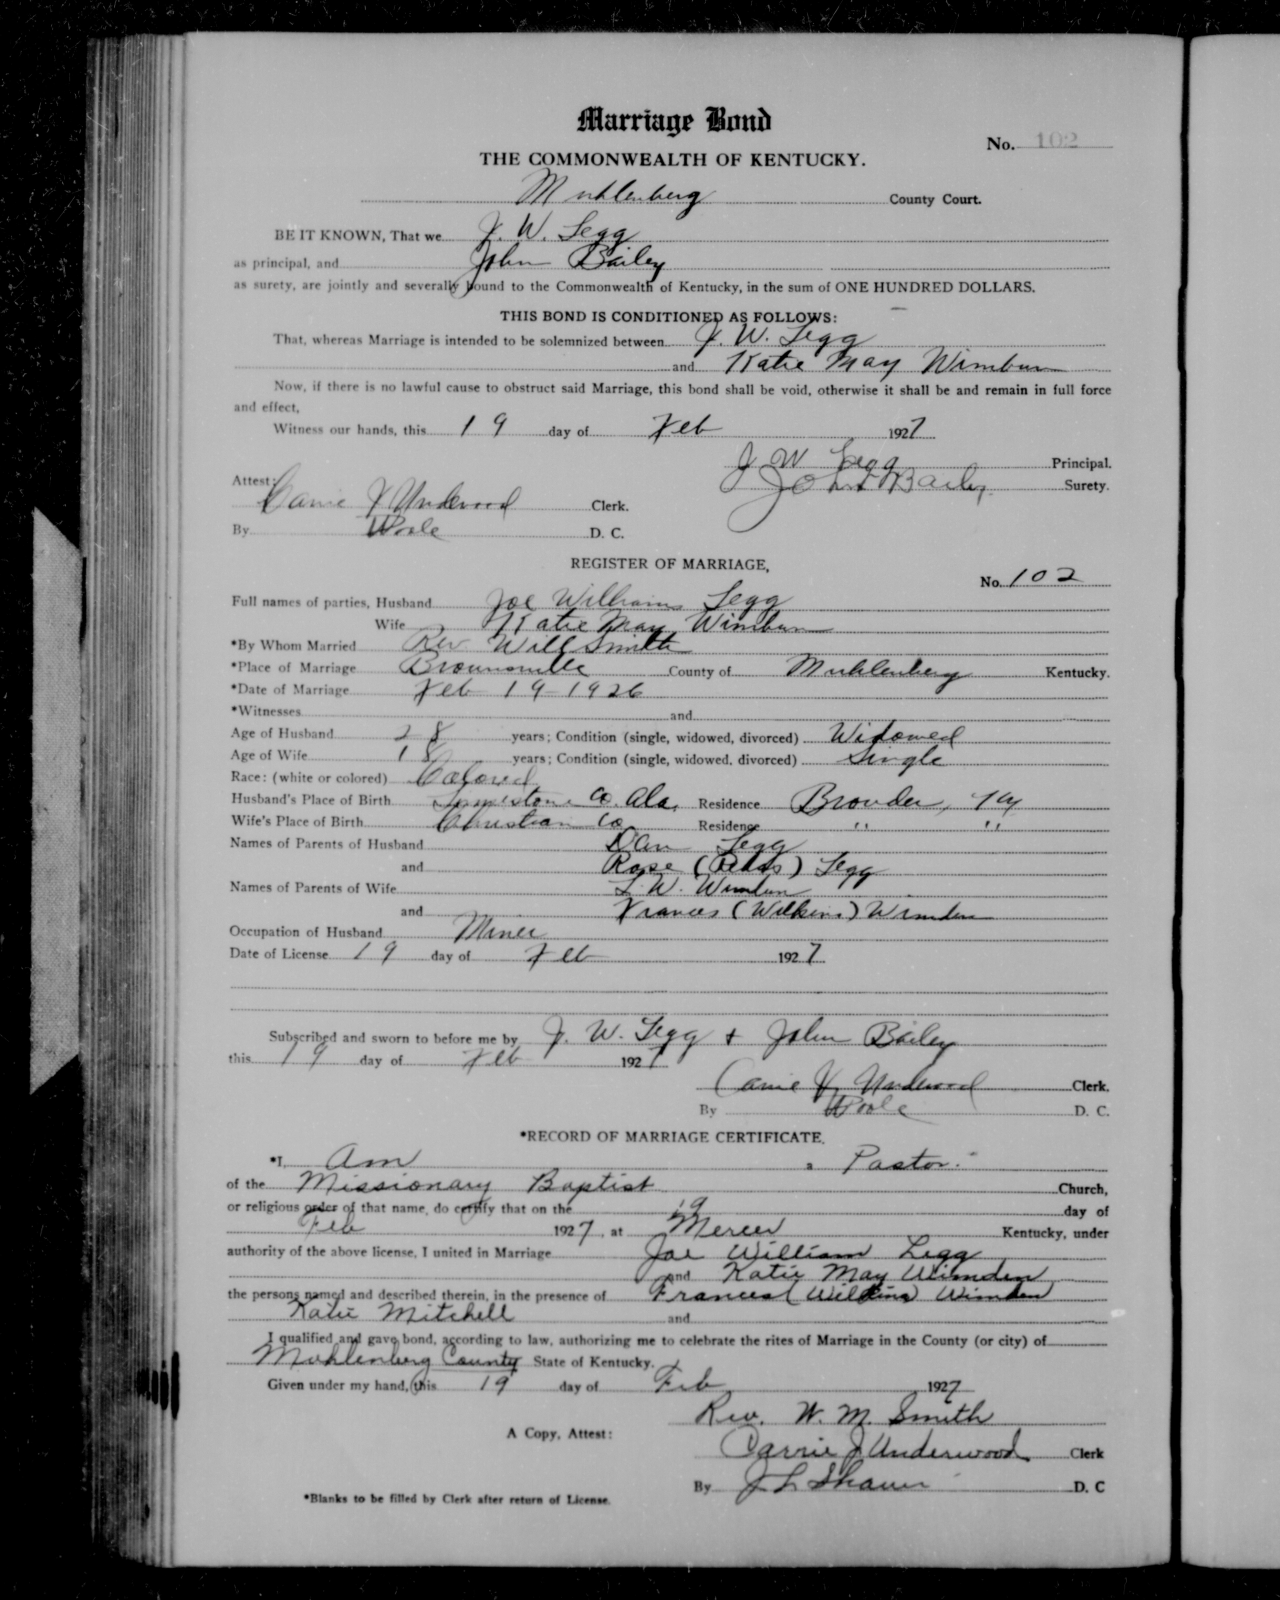 Marriage Bond
No. 102
THE COMMONWEALTH OF KENTUCKY.
Muhlenberg County Court.
BE IT KNOWN, That we J. W. Legg
as principal, and John Bailey
as surety, are jointly and severally bound to the Commonwealth of Kentucky, in the sum of ONE HUNDRED DOLLARS.
THIS BOND IS CONDITIONED AS FOLLOWS:
That, whereas Marriage is intended to be solemnized between J. W. Legg
and Katie May
Now, if there is no lawful cause to obstruct said Marriage, this bond shall be void, otherwise it shall be and remain in full force
and effect,
Witness our hands, this 19 day of Feb 1927
J W Legg Principal.
John Bailey Surety.
Attest: Carrie J Underwood Clerk.
By D. C.
REGISTER OF MARRIAGE,
No. 102
Full names of parties, Husband Joe Williams Legg
Wife Katie May
*By Whom Married Rev Will Smith
*Place of Marriage Brownsville County of Muhlenberg Kentucky.
*Date of Marriage Feb 19-1926
*Witnesses and
Age of Husband 28 years; Condition (single, widowed, divorced) Widowed
Age of Wife 18 years; Condition (single, widowed, divorced) Single
Race: (white or colored) Colored
Husband's Place of Birth Limestone Co. Ala. Residence Browder, Ky
Wife's Place of Birth Christian Co Residence " "
Names of Parents of Husband Dan Legg
and Rose ( ) Legg
Names of Parents of Wife L. W.
and Frances (Wilkins)
Occupation of Husband Miner
Date of License 19 day of Feb 1927
Subscribed and sworn to before me by J. W. Legg + John Bailey
this 19 day of Feb 1927
Carrie J. Underwood Clerk.
By D. C.
*RECORD OF MARRIAGE CERTIFICATE.
*I, Am a Pastor.
of the Missionary Baptist Church,
or religious order of that name, do certify that on the 19 day of
Feb 1927, at Mercer Kentucky, under
authority of the above license, I united in Marriage Joe William Legg
and Katie May Wimden
the persons named and described therein, in the presence of Frances (Wilkins Wimden
Katie Mitchell and
I qualified and gave bond, according to law, authorizing me to celebrate the rites of Marriage in the County (or city) of
Muhlenberg County State of Kentucky.
Given under my hand, this 19 day of Feb 1927
Rev. W. M. Smith
A Copy, Attest: Carrie J Underwood Clerk
By J L D. C
*Blanks to be filled by Clerk after return of License.